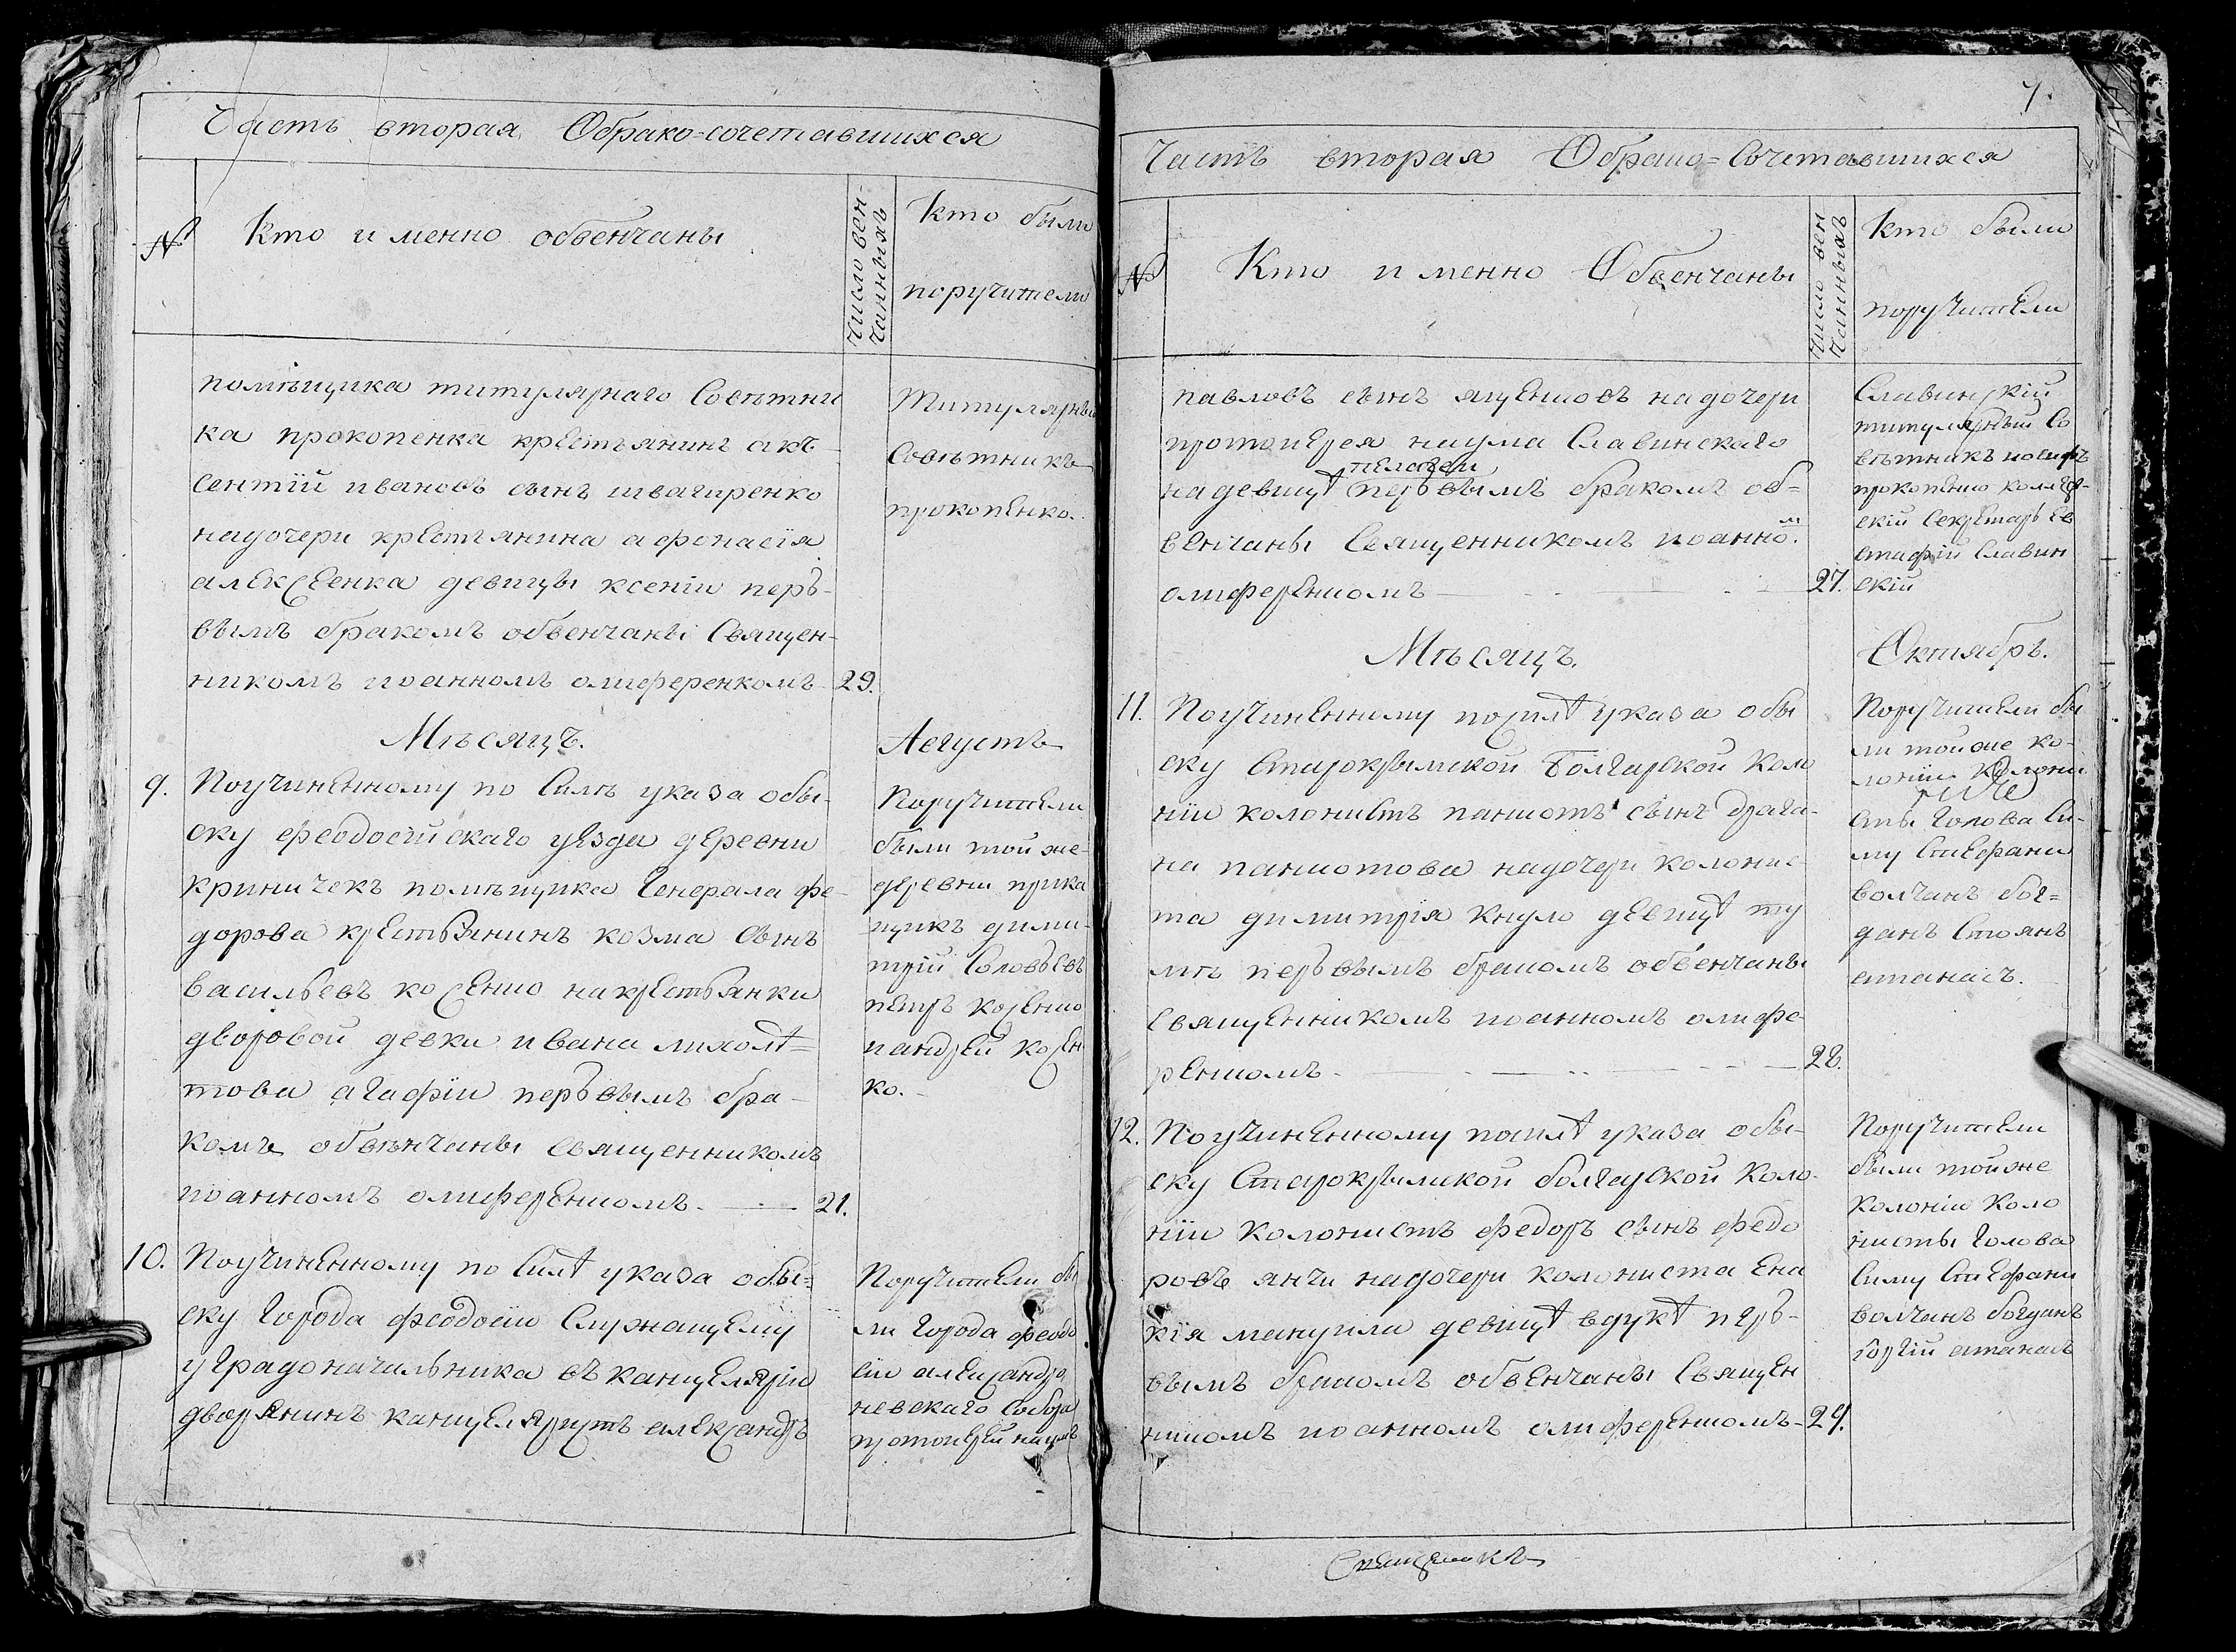 Часть вторая Обрако-сочетавшихся
№
Кто именно обвенчаны
Число вен-
чанныхъ
Кто были
поручители
помѣщика титулярнаго Совѣтни
ка прокопенка крестьянинъ акъ-
сентій ивановъ сынъ швагиренко
надочери крестьянина афонасія
алексеенка девицы ксеніи перъ-
вымъ бракомъ обвенчаны Священ-
никомъ иоанномъ олиференкомъ 29.
Титулярный
Совѣтникъ
прокопенко.
Мѣсяцъ. Августъ
9. Поучиненному по Силѣ указа обы-
ску феодосійскаго уезда деревни
криничекъ помѣщика Генерала фе-
дорова крестьянинъ козма Сынъ
васильевъ косенко накрестьянки
дворовой девки ивана лихолѣ=
това агафіи перъвымъ бра-
комъ обвѣнчаны священникомъ
иоанномъ олиференкомъ. 21.
Поручители
были той же
деревни прика
щикъ дими-
трій Соловьевъ
петръ косенко
иандрей косен
ко.
10. Поучиненному по Силѣ указа обы=
ску города феодосіи Служащему
у градоначальника въ канцеляріи
дворянинъ канцеляристъ александръ
Поручители бы
ли города феодо
сіи александра
невскаго Собора
протоиерей наумъ
7.
Часть вторая Обрако=Сочетавшихся
№
Кто именно Обвенчаны
Число вен
чанныхъ
Кто были
поручители
павловъ сынъ яценковъ надочери
протоиерея наума Славинскаго
пелагеи
надевицѣ перъвымъ бракомъ об=
венчаны Священникомъ иоанном.
олиференкомъ 27.
Славинскій
титулярный Со
вѣтникъ иосифъ
прокопенко коллеж-
скій Секретарь Ев
стафій Славин
скій
Мѣсяцъ. Октябрь.
11. Поучиненному посилѣ указа обы
ску Старокрымской Болгарской Коло
ніи колонистъ паниотъ сынъ драга-
на паниотова надочери колонис-
та димитрія кнуло девицѣ ту
мѣ перъвымъ бракомъ обвенчаны
священникомъ иоанномъ олифе-
ренкомъ. 28.
Поручители бы
ли той же ко-
лоніи колони
сты Голова Си-
му Стефани
волчанъ бог=
данъ Стоянъ
атанасъ.
12. Поучиненному посилѣ указа обы-
ску Старокрымской болгарской Коло-
ніи колонистъ федоръ сынъ федо
ровъ янчи надочери колониста Ена
кія мануили девицѣ вдукѣ перъ-
вымъ бракомъ обвенчаны Священ
никомъ иоанномъ олиференкомъ- 29.
Поручители
были той же
колоніи коло
нисты Голова
Симу Стефани
волчанъ богданъ
горгій атанасъ
Священникъ